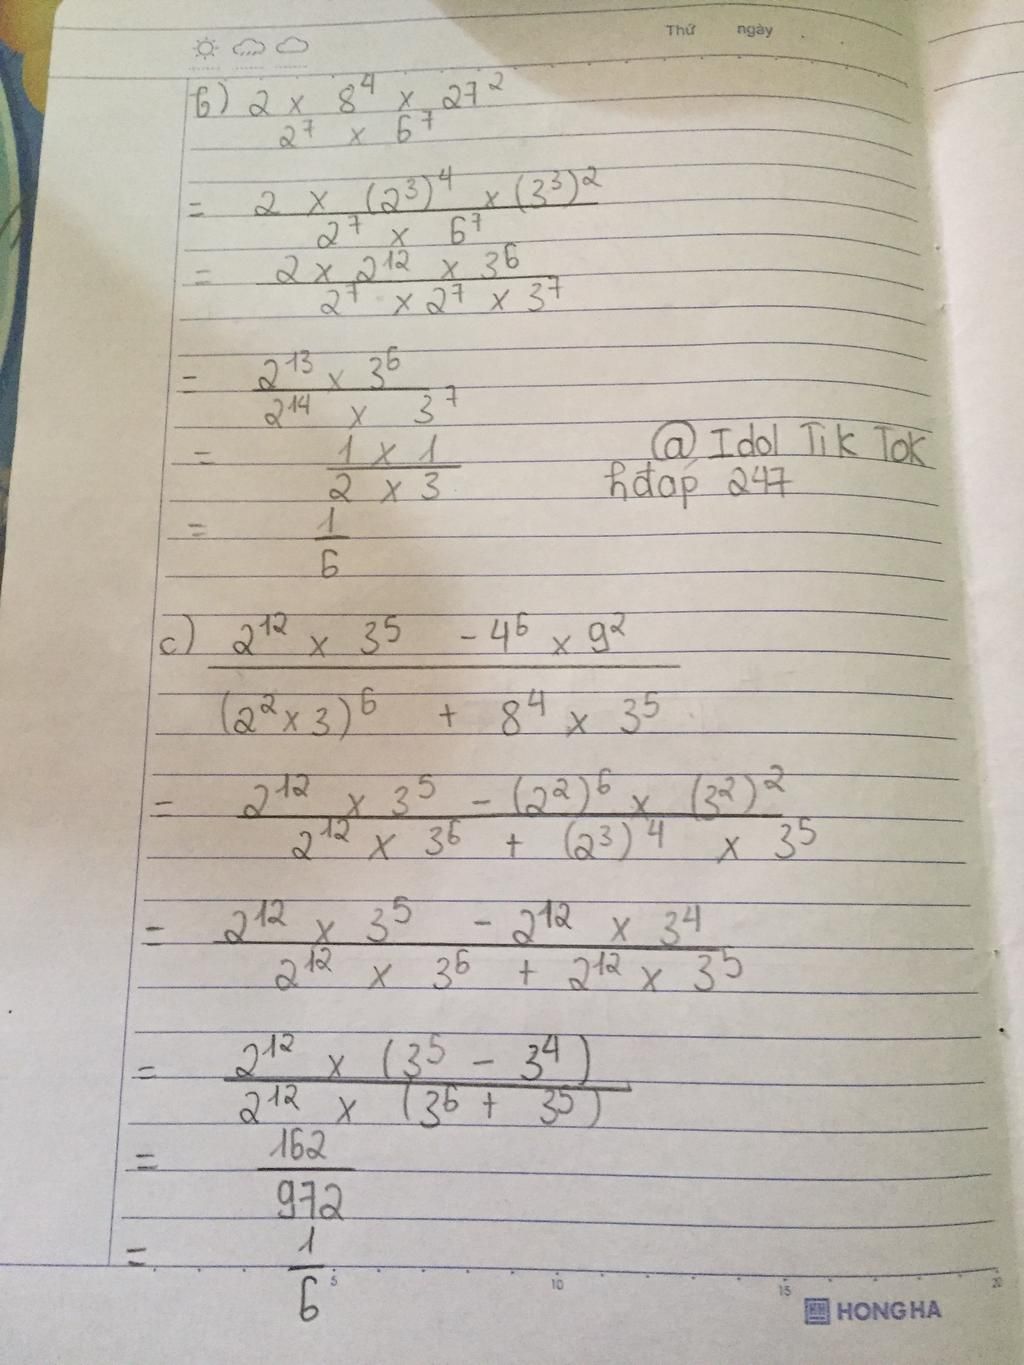 Thứ ngày
b) 2 x 8⁴ x 27²
2⁷ x 6⁷
= 2 x (2³)⁴ x (3³)²
2⁷ x 6⁷
= 2 x 2¹² x 3⁶
2⁷ x 2⁷ x 3⁷
= 2¹³ x 3⁶
2¹⁴ x 3⁷
= 1 x 1
2 x 3
@ Idol Tik Tok
hđap 247
= 1
6
c) 2¹² x 3⁵ - 4⁶ x 9²
(2² x 3)⁶ + 8⁴ x 3⁵
= 2¹² x 3⁵ - (2²)⁶ x (3²)²
2¹² x 3⁶ + (2³)⁴ x 3⁵
= 2¹² x 3⁵ - 2¹² x 3⁴
2¹² x 3⁶ + 2¹² x 3⁵
= 2¹² x (3⁵ - 3⁴)
2¹² x (3⁶ + 3⁵)
= 162
972
= 1
6
5 10 15 20
HH HONG HA